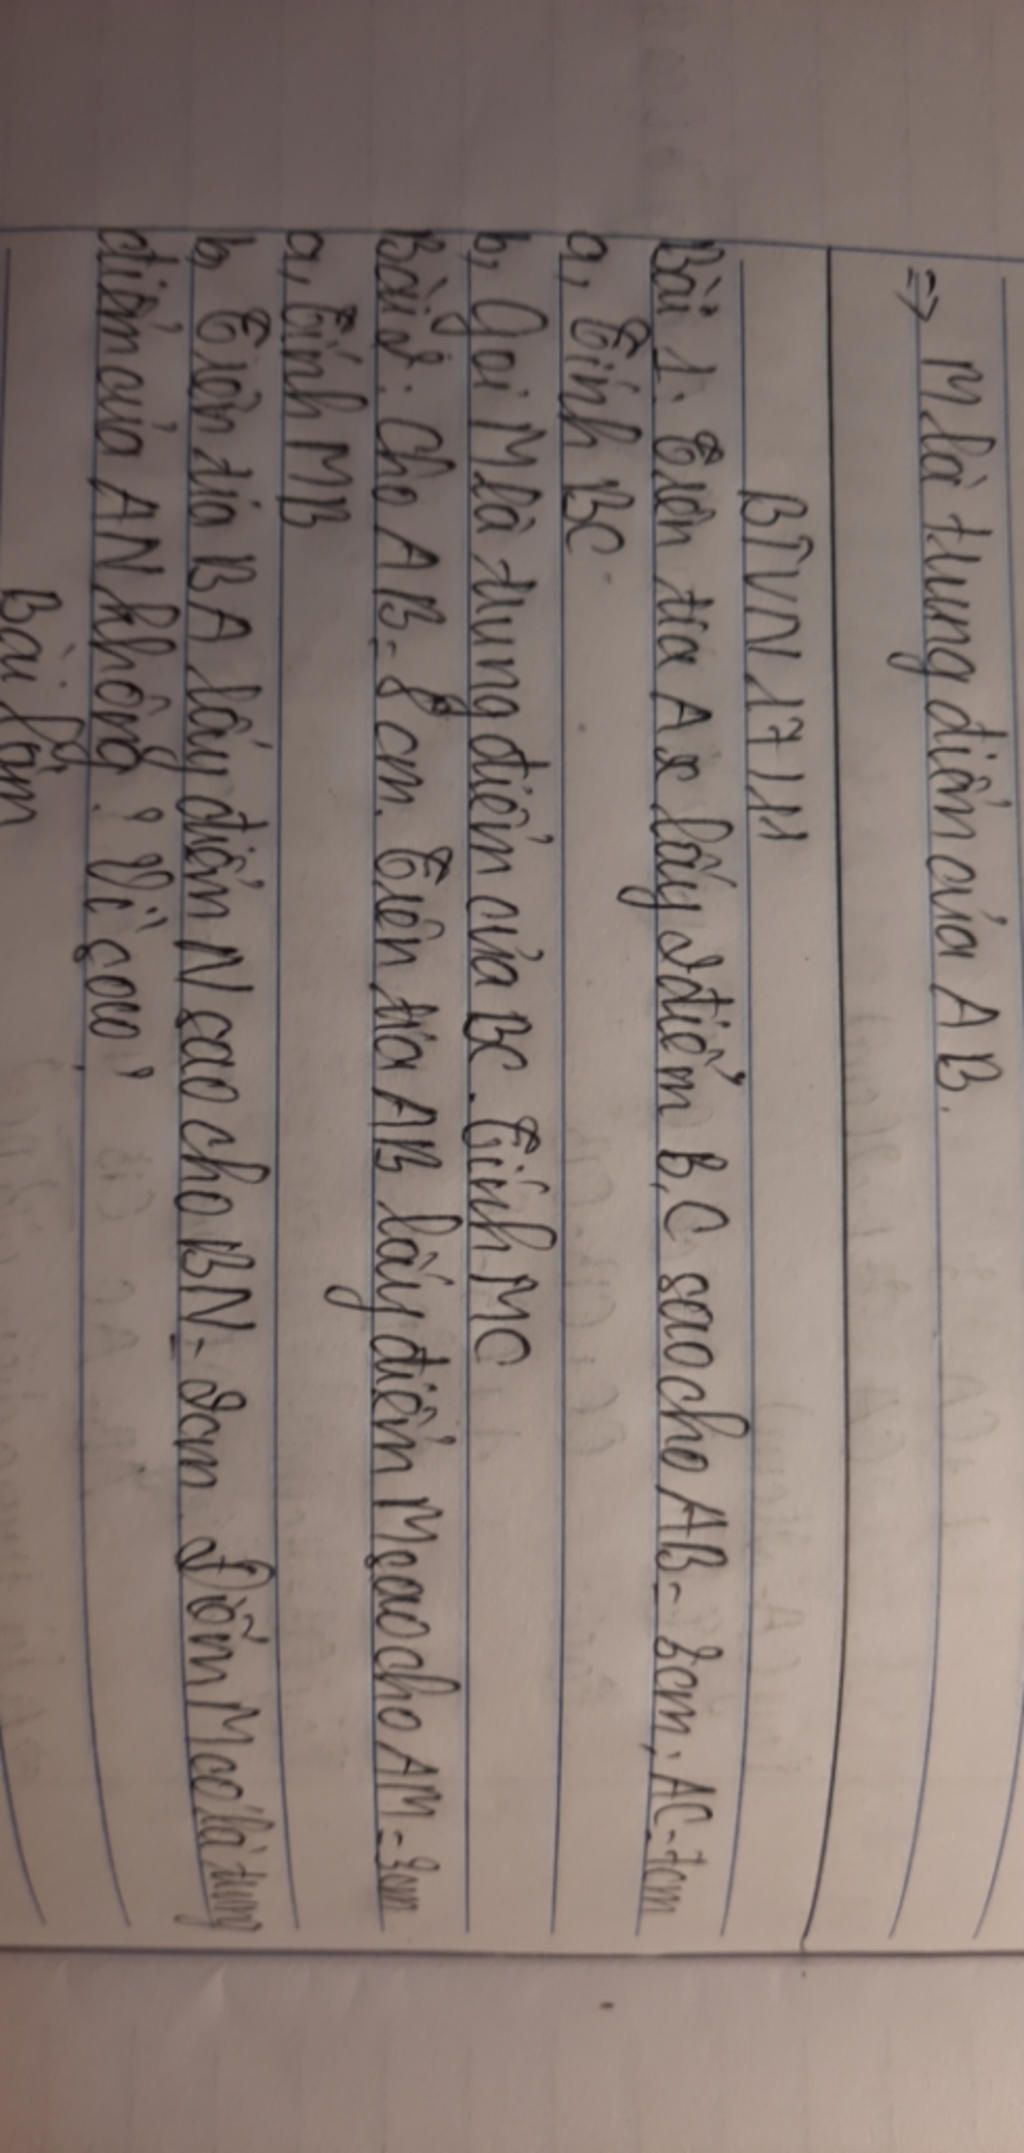 => M là trung điểm của AB.
BTVN 17/11
Bài 1. Trên tia Ax lấy 2 điểm B, C sao cho AB = 3cm, AC = 7cm
a, Tính BC.
b, Gọi M là trung điểm của BC. Tính MC
Bài 2. Cho AB = 8cm. Trên tia AB lấy điểm M sao cho AM = 3cm
a, Tính MB
b, Trên tia BA lấy điểm N sao cho BN = 2cm. Điểm M có là trung
điểm của AN không? Vì sao?
Bài làm